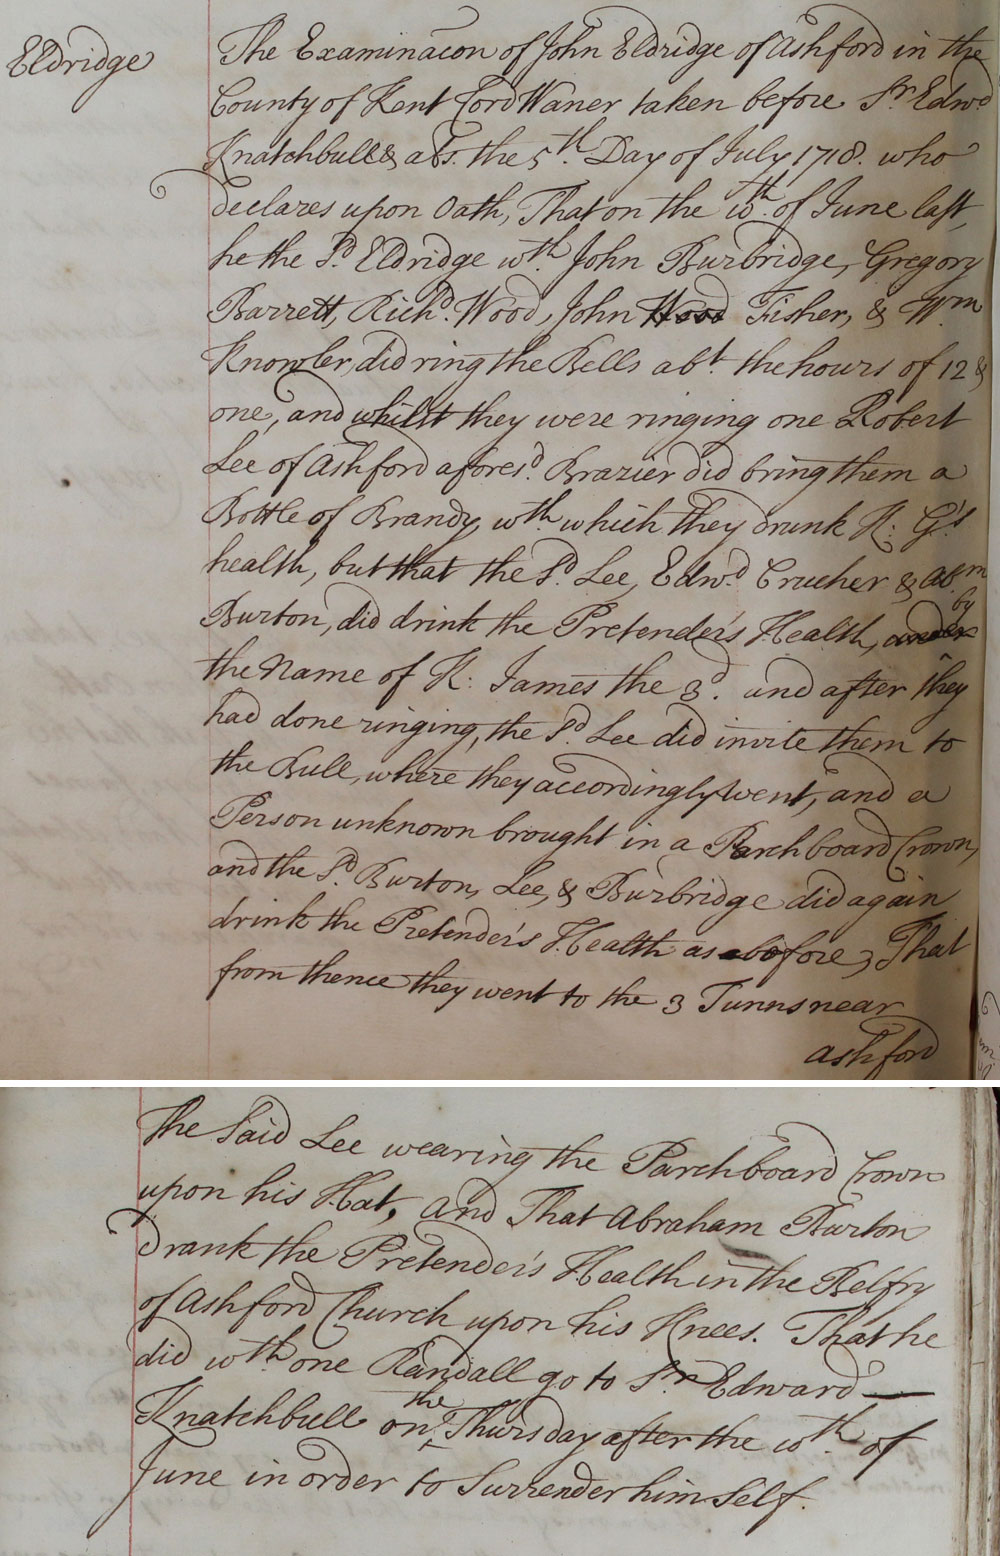 Eldridge
The Examinacon of John Eldridge of Ashford in the
County of Kent Cord Waner taken before Sr. Edwd.
Knatchbull & als. the 5th. Day of July 1718. who
declares upon Oath, That on the 10th. of June last,
he the Sd. Eldridge wth. John Burbridge, Gregory
Barrett, Richd. Wood, John Wood Fisher, & Wm
Knowler, did ring the Bells abt. the hours of 12 &
one, and whilst they were ringing one Robert
Lee of Ashford aforesd. Brazier did bring them a
Bottle of Brandy, wth. which they drunk K: G's
health, but that the Sd. Lee, Edwd. Crucher & Abm
Burton, did drink the Pretender's Health, under by
the Name of K: James the 3d. and after they
had done ringing, the Sd. Lee did invite them to
the Bull, where they accordingly went, and a
Person unknown brought in a Parchboard Crown,
and the Sd. Burton, Lee, & Burbridge did again
drink the Pretender's Health as before; That
from thence they went to the 3 Tunns near
Ashford
The Said Lee wearing the Parchboard Crown
upon his Hat, and That Abraham Burton
Drank the Pretender's Health in the Belfry
of Ashford Church upon his Knees. That he
did wth one Randall go to Sr Edward
Knatchbull on the Thursday after the 10th of
June in order to Surrender himself.